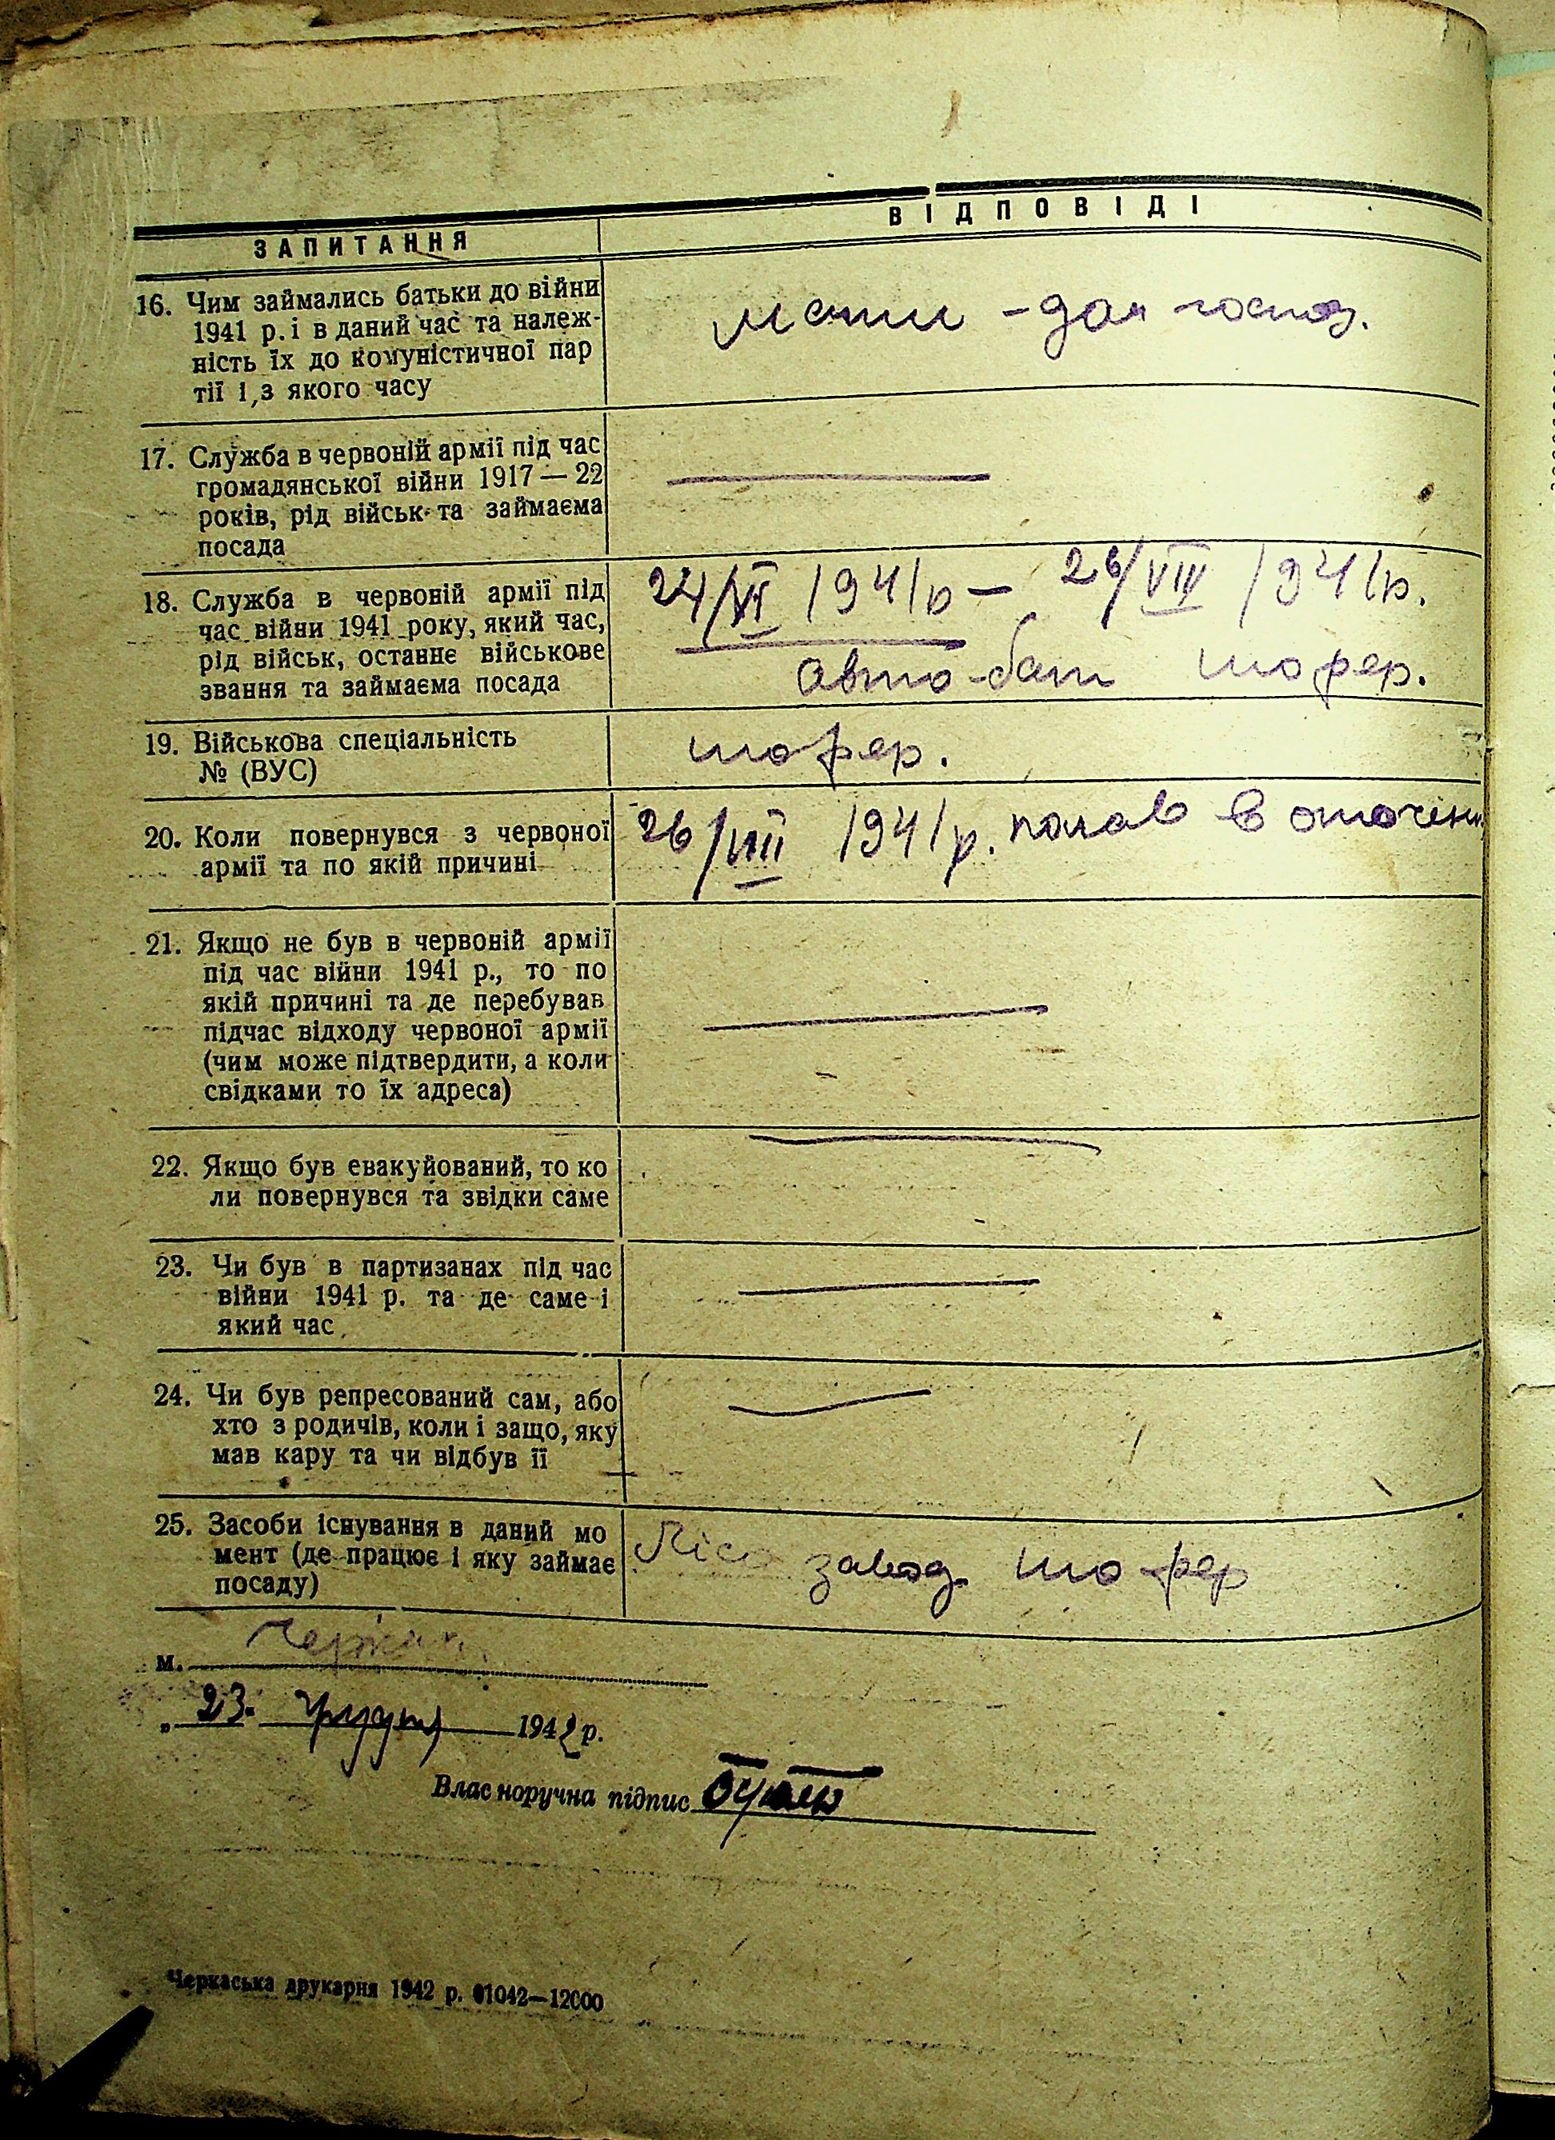 ЗАПИТАННЯ
ВІДПОВІДІ
16. Чим займались батьки до війни
1941 р. і в даний час та належ-
ність їх до комуністичної пар
тії і, з якого часу
мати - дом господ.
17. Служба в червоній армії під час
громадянської війни 1917 — 22
років, рід військ та займаєма
посада
18. Служба в червоній армії під
час війни 1941 року, який час,
рід військ, останнє військове
звання та займаєма посада
24/VI 1941р — 26/VIII 1941р.
авто-бат шофер.
19. Військова спеціальність
№ (ВУС)
шофер.
20. Коли повернувся з червоної
армії та по якій причині
26/VIII 1941р. попав в оточен
21. Якщо не був в червоній армії
під час війни 1941 р., то по
якій причині та де перебував
підчас відходу червоної армії
(чим може підтвердити, а коли
свідками то їх адреса)
22. Якщо був евакуйований, то ко
ли повернувся та звідки саме
23. Чи був в партизанах під час
війни 1941 р. та де саме і
який час
24. Чи був репресований сам, або
хто з родичів, коли і защо, яку
мав кару та чи відбув її
25. Засоби існування в даний мо
мент (де працює і яку займає
посаду)
Лісо завод шофер
м. Черкаси
„ 23. грудня 1942 р.
Власноручна підпис
Черкаська друкарня 1942 р. 01042—12000